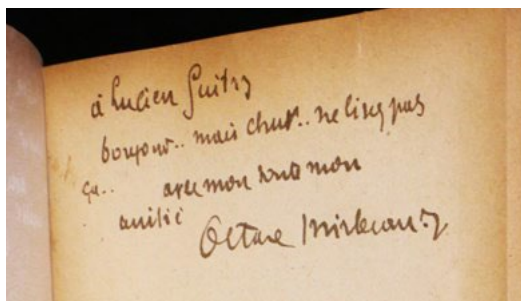 à Lucien Guitry
bonjour.. mais chut.. ne lisez pas
ça.. avec mon toute mon
amitié
Octave Mirbeau